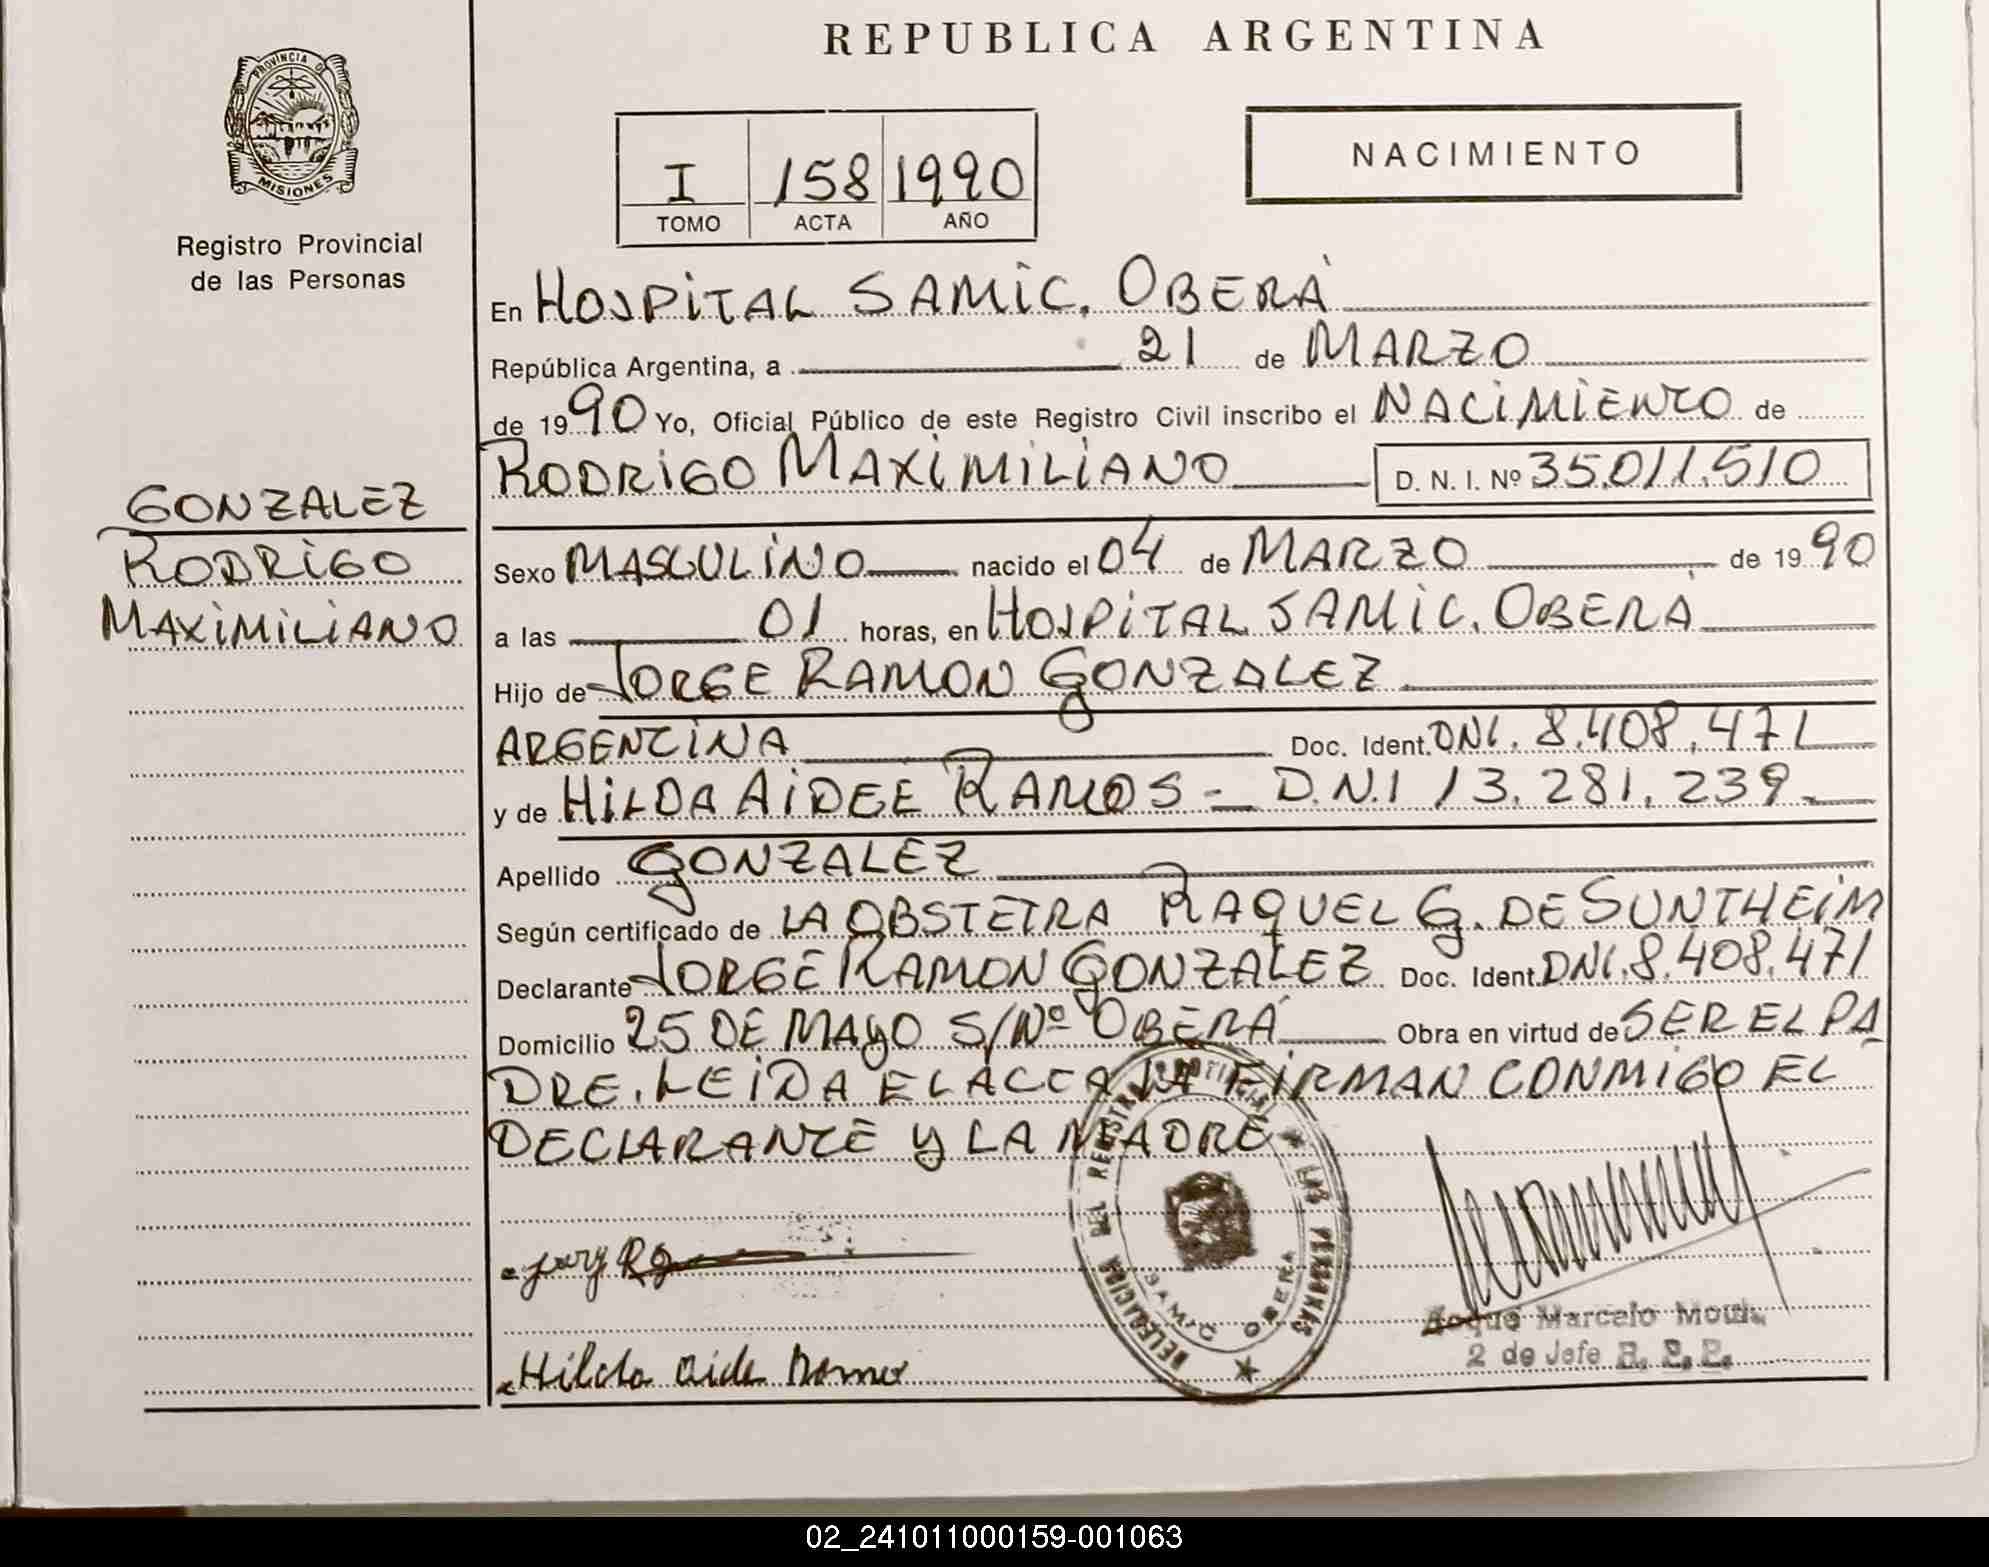 REPUBLICA ARGENTINA
PROVINCIA D
MISIONES
Registro Provincial
de las Personas
I 158 1990
TOMO ACTA AÑO
NACIMIENTO
En HOSPITAL SAMIC. OBERÁ
República Argentina, a 21 de MARZO
de 1990 Yo, Oficial Público de este Registro Civil inscribo el NACIMIENTO de
RODRIGO MAXIMILIANO D. N. I. Nº 35.011.510
GONZALEZ
RODRIGO
MAXIMILIANO
Sexo MASCULINO nacido el 04 de MARZO de 1990
a las 01 horas, en HOSPITAL SAMIC. OBERA
Hijo de JORGE RAMON GONZALEZ
ARGENTINA Doc. Ident. DNI. 8.408.471
y de HILDA AIDEE RAMOS - D.N.I 13.281.239
Apellido GONZALEZ
Según certificado de LA OBSTETRA RAQUEL G. DE SUNTHEIM
Declarante JORGE RAMON GONZALEZ Doc. Ident. DNI. 8.408.471
Domicilio 25 DE MAYO S/Nº OBERÁ Obra en virtud de SER EL PA
DRE. LEIDA EL ACTA LA FIRMAN CONMIGO EL
DECLARANTE Y LA MADRE
DELEGACION DEL REGISTRO PROVINCIAL DE LAS PERSONAS
SAMIC OBERA
Hilda aide Ramos
Roque Marcelo
2 de Jefe R. P. P.
02_241011000159-001063